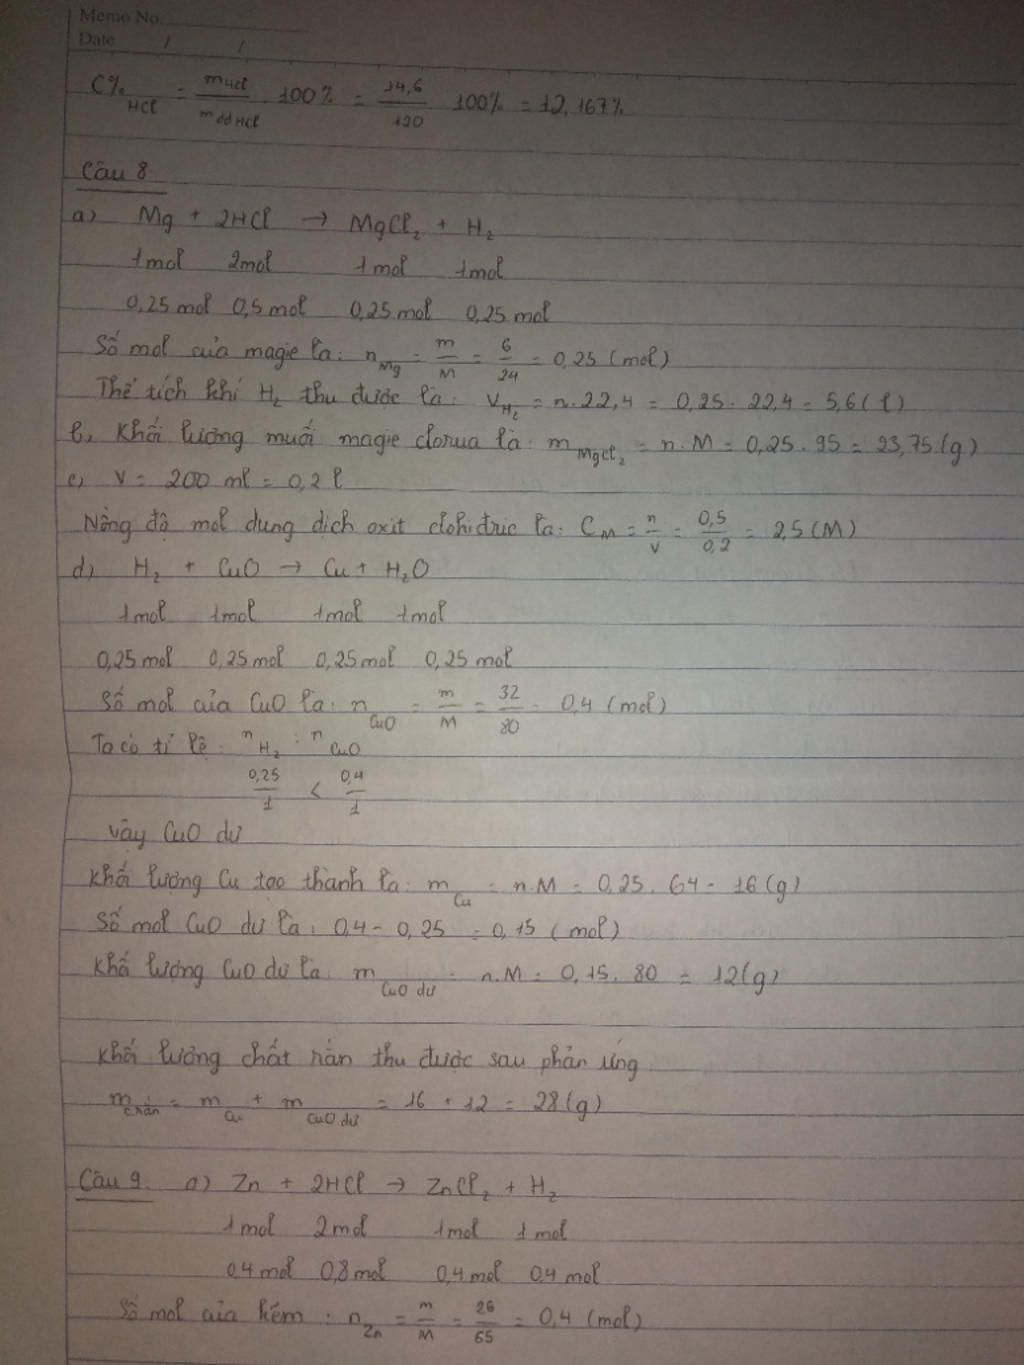 Memo No.
Date / /
C%HCl = mHCl/mddHCl . 100% = 14,6/120 . 100% = 12,167%
Câu 8.
a) Mg + 2HCl → MgCl₂ + H₂
1mol 2mol 1mol 1mol
0,25mol 0,5mol 0,25mol 0,25mol
Số mol của magie là: nMg = m/M = 6/24 = 0,25 (mol)
Thể tích khí H₂ thu được là: VH₂ = n.22,4 = 0,25.22,4 = 5,6(l)
b, Khối lượng muối magie clorua là: mMgCl₂ = n.M = 0,25.95 = 23,75(g)
c) V = 200 ml = 0,2l
Nồng độ mol dung dịch oxit clohiđric là: CM = n/V = 0,5/0,2 = 2,5(M)
d) H₂ + CuO → Cu + H₂O
1mol 1mol 1mol 1mol
0,25mol 0,25mol 0,25mol 0,25mol
Số mol của CuO là: nCuO = m/M = 32/80 = 0,4 (mol)
Ta có tỉ lệ: nH₂ : nCuO
0,25/1 < 0,4/1
vậy CuO dư
Khối lượng Cu tạo thành là: mCu = n.M = 0,25.64 = 16(g)
Số mol CuO dư là: 0,4 - 0,25 = 0,15 (mol)
Khối lượng CuO dư là: mCuO dư = n.M = 0,15.80 = 12(g)
Khối lượng chất rắn thu được sau phản ứng.
mc.rắn = mCu + mCuO dư = 16 + 12 = 28(g)
Câu 9. a) Zn + 2HCl → ZnCl₂ + H₂
1mol 2mol 1mol 1mol
0,4mol 0,8mol 0,4mol 0,4mol
Số mol của kẽm: nZn = m/M = 26/65 = 0,4 (mol)